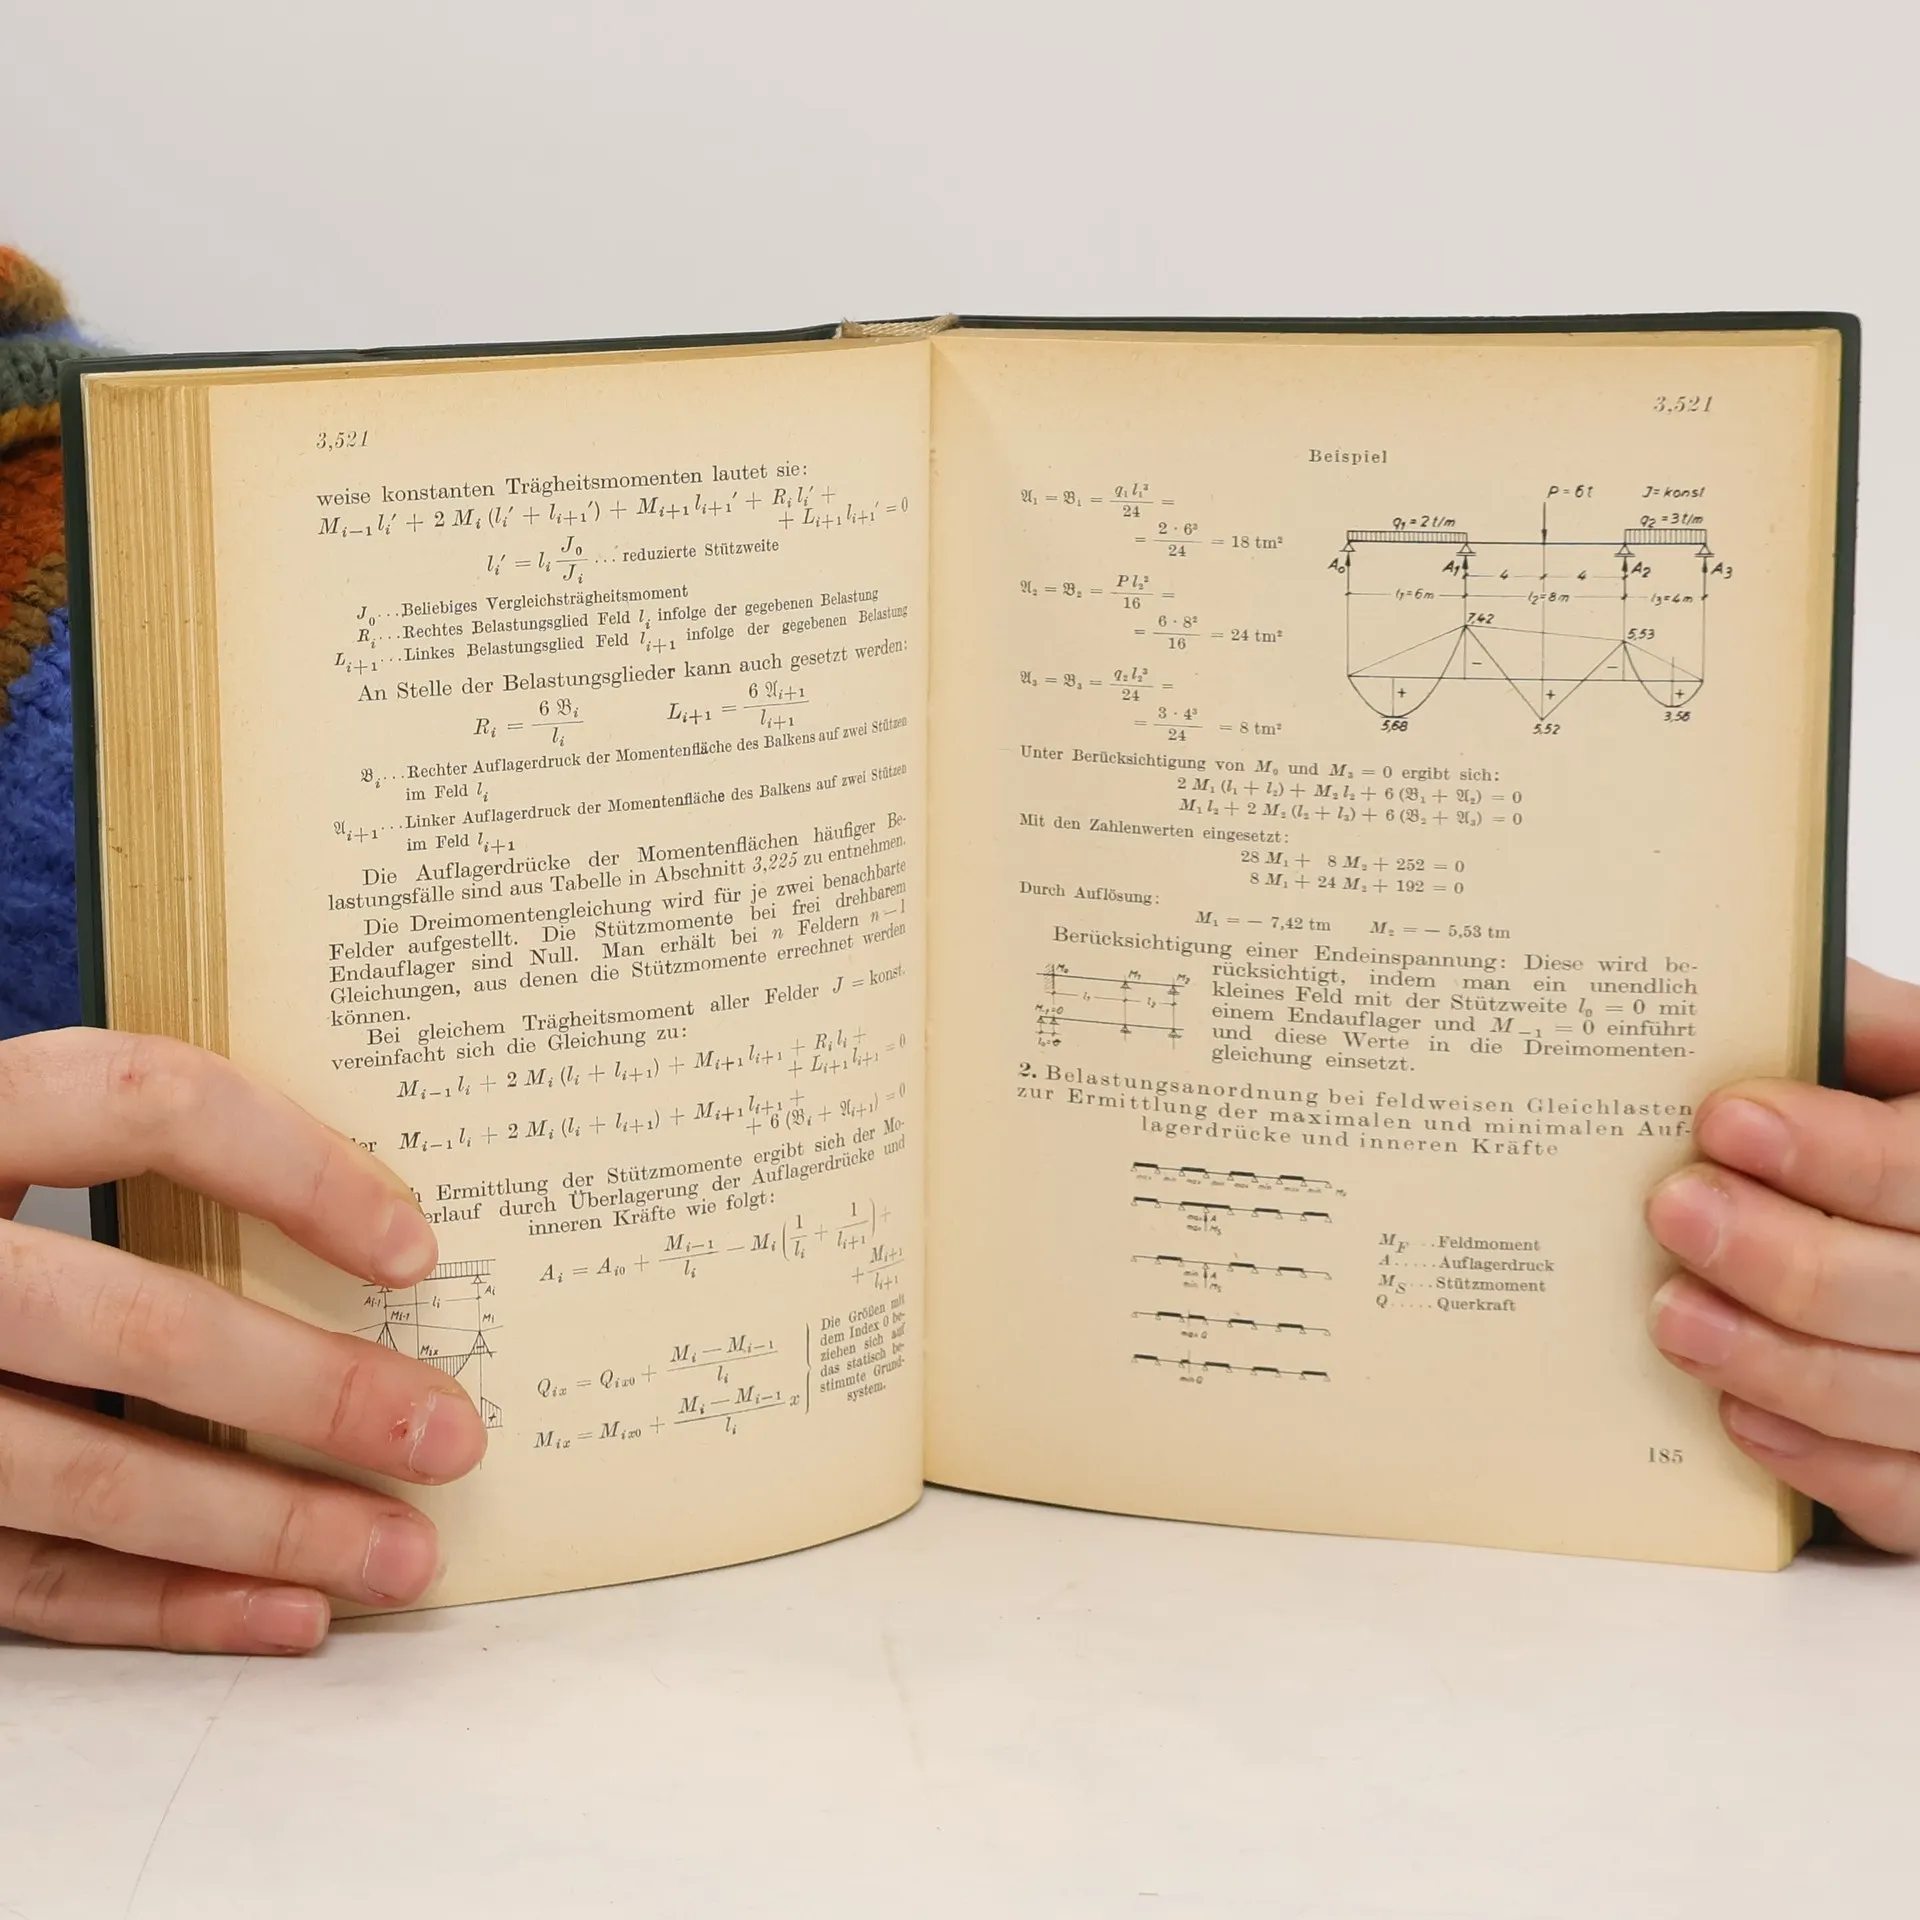 3,521
weise konstanten Trägheitsmomenten lautet sie:
M_{i−1} l_i′ + 2 M_i (l_i′ + l_{i+1}′) + M_{i+1} l_{i+1}′ + R_i l_i′ +
+ L_{i+1} l_{i+1}′ = 0
l_i′ = l_i J_0/J_i ... reduzierte Stützweite
J_0 ... Beliebiges Vergleichsträgheitsmoment
R_i ... Rechtes Belastungsglied Feld l_i infolge der gegebenen Belastung
L_{i+1} ... Linkes Belastungsglied Feld l_{i+1} infolge der gegebenen Belastung
An Stelle der Belastungsglieder kann auch gesetzt werden:
R_i = 6 𝔅_i/l_i L_{i+1} = 6 𝔄_{i+1}/l_{i+1}
𝔅_i ... Rechter Auflagerdruck der Momentenfläche des Balkens auf zwei Stützen
im Feld l_i
𝔄_{i+1} ... Linker Auflagerdruck der Momentenfläche des Balkens auf zwei Stützen
im Feld l_{i+1}
Die Auflagerdrücke der Momentenflächen häufiger Be-
lastungsfälle sind aus Tabelle in Abschnitt 3,225 zu entnehmen.
Die Dreimomentengleichung wird für je zwei benachbarte
Felder aufgestellt. Die Stützmomente bei frei drehbarem
Endauflager sind Null. Man erhält bei n Feldern n−1
Gleichungen, aus denen die Stützmomente errechnet werden
können.
Bei gleichem Trägheitsmoment aller Felder J = konst.
vereinfacht sich die Gleichung zu:
M_{i−1} l_i + 2 M_i (l_i + l_{i+1}) + M_{i+1} l_{i+1} + R_i l_i +
+ L_{i+1} l_{i+1} = 0
er M_{i−1} l_i + 2 M_i (l_i + l_{i+1}) + M_{i+1} l_{i+1} +
+ 6 (𝔅_i + 𝔄_{i+1}) = 0
h Ermittlung der Stützmomente ergibt sich der Mo-
erlauf durch Überlagerung der Auflagerdrücke und
inneren Kräfte wie folgt:
A_i = A_{i0} + M_{i−1}/l_i − M_i (1/l_i + 1/l_{i+1}) +
+ M_{i+1}/l_{i+1}
A_{i-1} l_i A_i
M_{i-1} M_i
M_{ix}
+
Q_{ix} = Q_{ix0} + (M_i − M_{i−1})/l_i
M_{ix} = M_{ix0} + (M_i − M_{i−1})/l_i x
Die Größen mit
dem Index 0 be-
ziehen sich auf
das statisch be-
stimmte Grund-
system.
3,521
Beispiel
𝔄₁ = 𝔅₁ = q₁ l₁³/24 =
= 2 · 6³/24 = 18 tm²
𝔄₂ = 𝔅₂ = P l₂²/16 =
= 6 · 8²/16 = 24 tm²
𝔄₃ = 𝔅₃ = q₂ l₂³/24 =
= 3 · 4³/24 = 8 tm²
P = 6t J = konst
q₁ = 2 t/m q₂ = 3 t/m
A₀ A₁ 4 4 A₂ A₃
l₁=6m l₂=8m l₃=4m
7,42 5,53
− −
+ + +
5,68 5,52 3,56
Unter Berücksichtigung von M₀ und M₃ = 0 ergibt sich:
2 M₁ (l₁ + l₂) + M₂ l₂ + 6 (𝔅₁ + 𝔄₂) = 0
M₁ l₂ + 2 M₂ (l₂ + l₃) + 6 (𝔅₂ + 𝔄₃) = 0
Mit den Zahlenwerten eingesetzt:
28 M₁ + 8 M₂ + 252 = 0
8 M₁ + 24 M₂ + 192 = 0
Durch Auflösung:
M₁ = − 7,42 tm M₂ = − 5,53 tm
Berücksichtigung einer Endeinspannung: Diese wird be-
rücksichtigt, indem man ein unendlich
kleines Feld mit der Stützweite l₀ = 0 mit
einem Endauflager und M₋₁ = 0 einführt
und diese Werte in die Dreimomenten-
gleichung einsetzt.
M₀ M₁ M₂
l₁ l₂
M₋₁=0
l₀=0
2. Belastungsanordnung bei feldweisen Gleichlasten
zur Ermittlung der maximalen und minimalen Auf-
lagerdrücke und inneren Kräfte
max min max min max min max min M_F
max A
max M_S
min A
min M_S
max Q
min Q
M_F .. Feldmoment
A ..... Auflagerdruck
M_S ... Stützmoment
Q ..... Querkraft
185